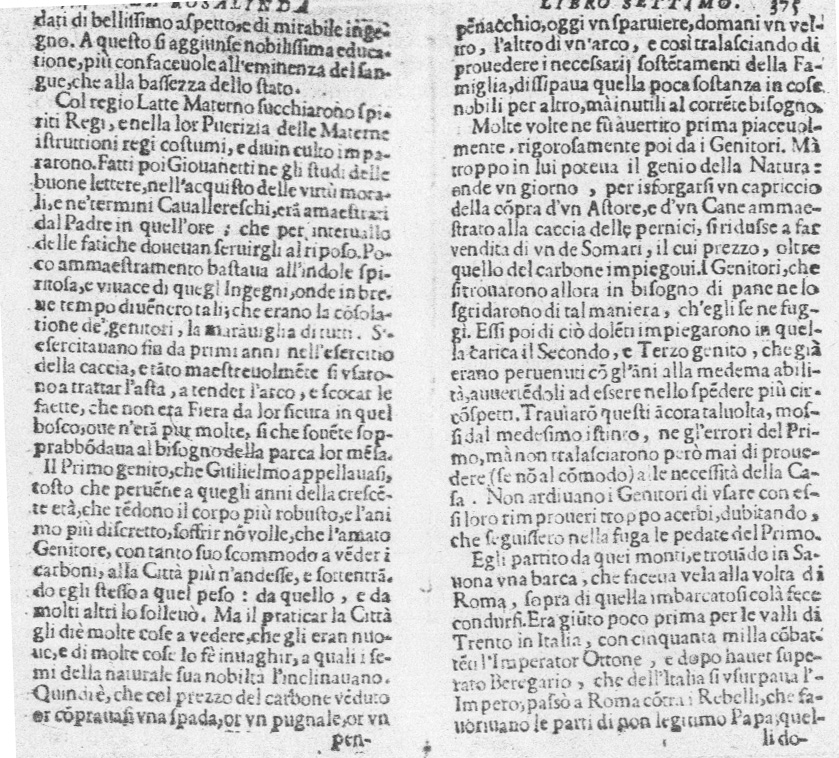 LA ROSALINDA
dati di bellissimo aspetto,e di mirabile inge-
gno. A questo si aggiunse nobilissima educa-
tione, più confaceuole all'eminenza del san-
gue,che alla bassezza dello stato.
Col regio Latte Materno succhiarono spi-
riti Regi, e nella lor Puerizia delle Materne
istruttioni regi costumi, e diuin culto impa-
rarono. Fatti poi Giouanetti ne gli studi delle
buone lettere,nell'acquisto delle virtù mora-
li, e ne'termini Cauallereschi, erā amaestrati
dal Padre in quell'ore ; che per interuallo
delle fatiche doueuan seruirgli al riposo. Po-
co ammaestramento bastaua all'indole spi-
ritosa,e viuace di quegl Ingegni,onde in bre-
ue tempo diuēnero tali; che erano la cōsola-
tione de' genitori , la marauiglia di tutti. S'-
esercitauano fin da primi anni nell'esercitio
della caccia, e tāto maestreuolmēte si vsaro-
no a trattar l'asta , a tender l'arco , e scocar le
saette, che non era Fiera da lor sicura in quel
bosco,oue n'erā pur molte, si che souēte sop-
prabbōdaua al bisogno della parca lor mēsa.
Il Primo genito,che Guilielmo appellauasi,
tosto che peruēne a quegli anni della crescē-
te età,che rēdono il corpo più robusto,e l'ani
mo più discretto,soffrir nō volle,che l'amato
Genitore, con tanto suo scommodo a vēder i
carboni, alla Città più n'andesse, e sottentrā-
do egli stesso a quel peso : da quello , e da
molti altri lo solleuò. Ma il praticar la Città
gli diè molte cose a vedere,che gli eran nuo-
ue,e di molte cose lo fè inuaghir, a quali i se-
mi della naturale sua nobiltà l'inclinauano.
Quindi è, che col prezzo del carbone vēduto
or cōprauasi vna spada,or vn pugnale,or vn
pen-
LIBRO SETTIMO. 375
pēnacchio,oggi vn sparuiere,domani vn vel-
tro, l'altro di vn'arco, e così tralasciando di
prouedere i necessarij sostētamenti della Fa-
miglia,dissipaua quella poca sostanza in cose
nobili per altro,mà inutili al corrēte bisogno.
Molte volte ne fù auertito prima piaceuol-
mente, rigorosamente poi da i Genitori. Mà
troppo in lui poteua il genio della Natura:
onde vn giorno , per isforgarsi vn capriccio
della cōpra d'vn Astore,e d'vn Cane ammae-
strato alla caccia delle pernici, si ridusse a far
vendita di vn de Somari, il cui prezzo, oltre
quello del carbone impiegoui.I Genitori,che
si trouarono allora in bisogno di pane ne lo
sgridarono di tal maniera, ch'egli se ne fug-
gì. Essi poi di ciò dolēti impiegarono in quel-
la carica il Secondo, e Terzo genito , che già
erano peruenuti cō gl'āni alla medema abili-
tà,auuertēdoli ad essere nello spēdere più cir-
cōspetti. Trauiarō questi ācora taluolta, mos-
si dal medesimo istinto, ne gl'errori del Pri-
mo,mà non tralasciarono però mai di proue-
dere (se nō al cōmodo) alle necessità della Ca-
sa . Non ardiuano i Genitori di vsare con es-
si loro rimproueri troppo acerbi,dubitando ,
che seguissero nella fuga le pedate del Primo.
Egli partito da quei monti,e trouādo in Sa-
uona vna barca , che faceua vela alla volta di
Roma , sopra di quella imbarcatosi colà fece
condursi.Era giūto poco prima per le valli di
Trento in Italia , con cinquanta milla cōbat-
tēti l'Imperator Ottone , e dopo hauer supe-
rato Beregario , che dell'Italia si vsurpaua l'-
Impero, passò a Roma cōtra i Rebelli,che fa-
uoriuano le parti di non legitimo Papa,quel-
li do-